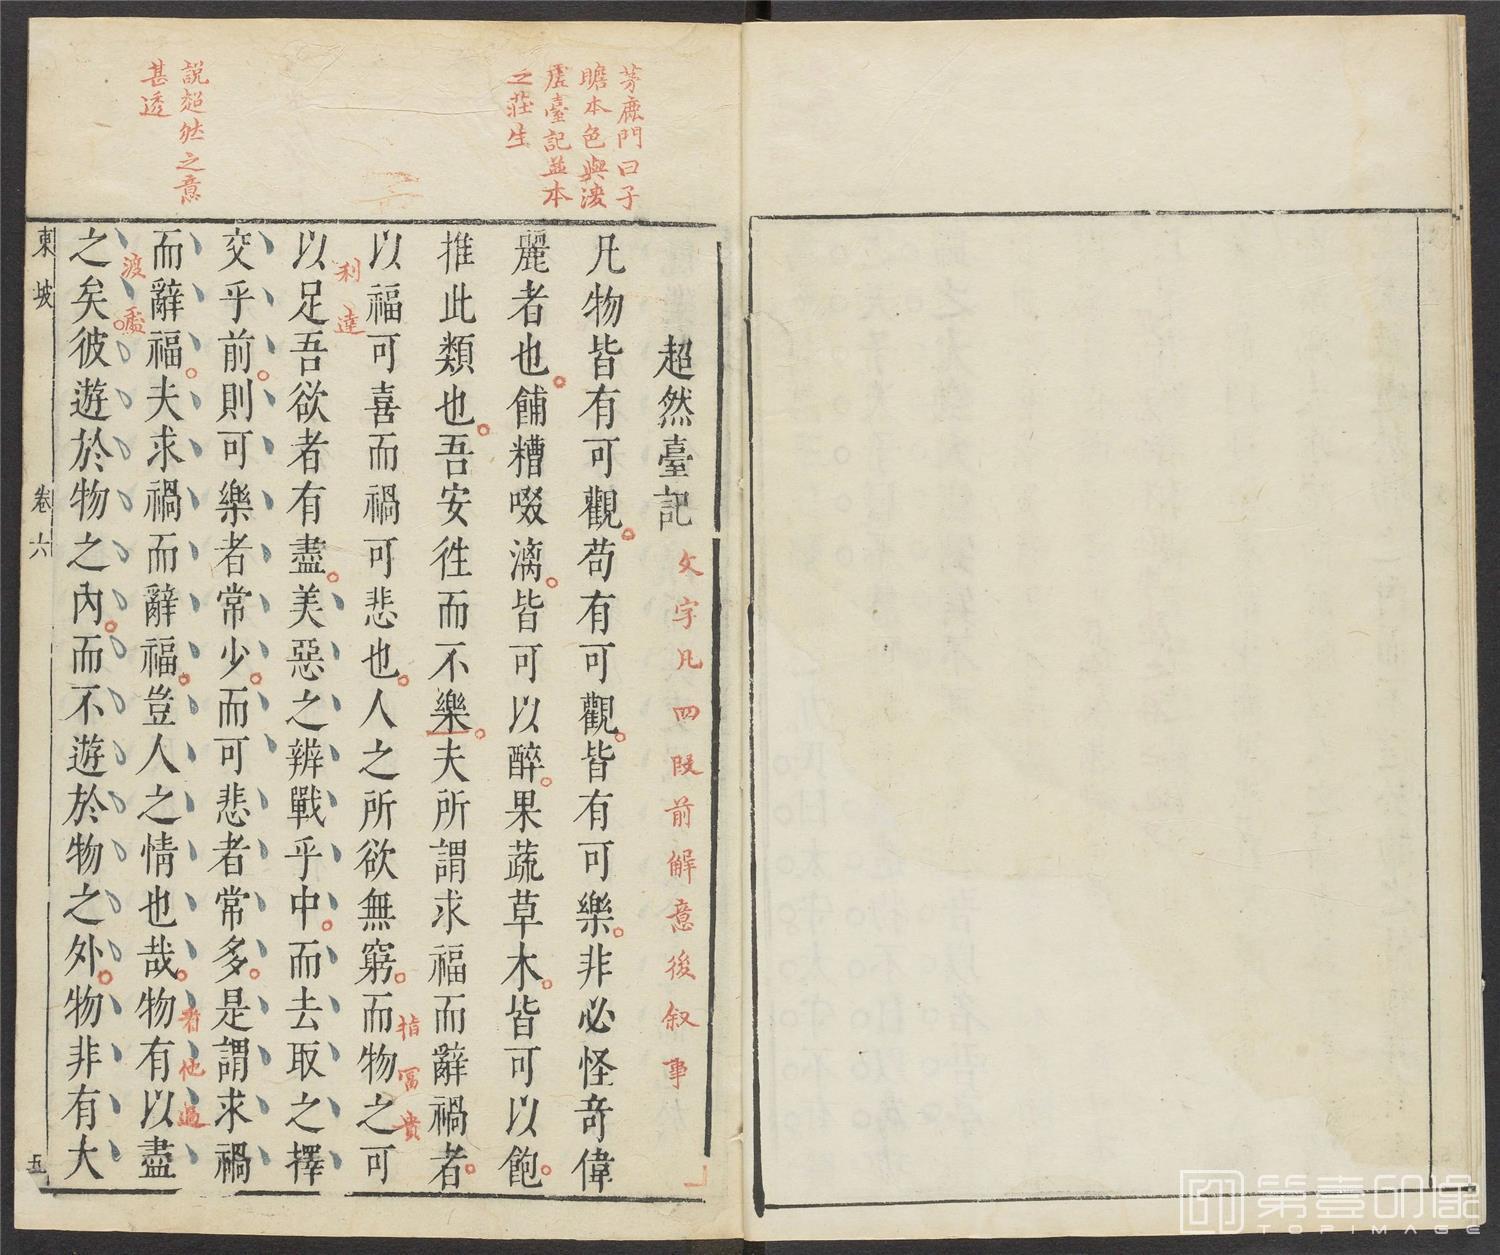 茅鹿門曰子
瞻本色與凌
虛臺記並本
之莊生
說超然之意
甚透
超然臺記
文字凡四段前解意後叙事
凡物皆有可觀苟有可觀皆有可樂非必怪奇偉
麗者也餔糟啜漓皆可以醉果蔬草木皆可以飽
推此類也吾安徃而不樂夫所謂求福而辭禍者
以福可喜而禍可悲也人之所欲無窮而物之可
指冨貴
利達
以足吾欲者有盡美惡之辨戰乎中而去取之擇
交乎前則可樂者常少而可悲者常多是謂求禍
而辭福夫求禍而辭福豈人之情也哉物有以盡
看他過
渡處
之矣彼遊於物之內而不遊於物之外物非有大
東坡
卷六
五
第壹印像
TOPIMAGE